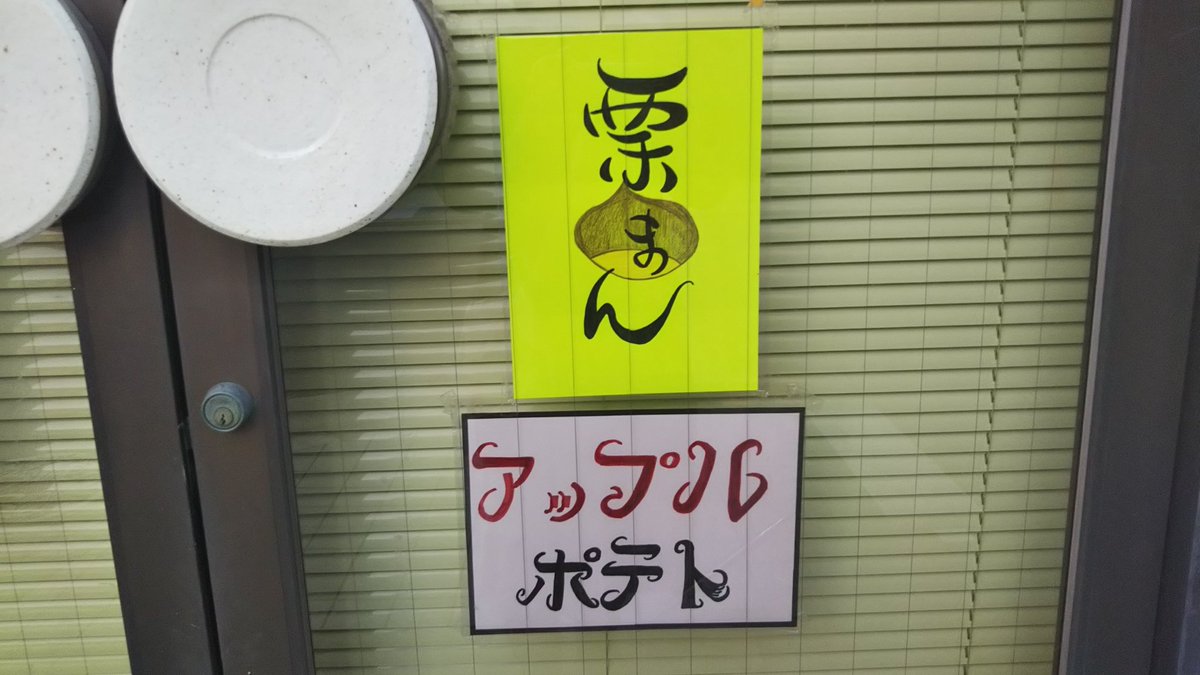 栗まん
アップル
ポテト